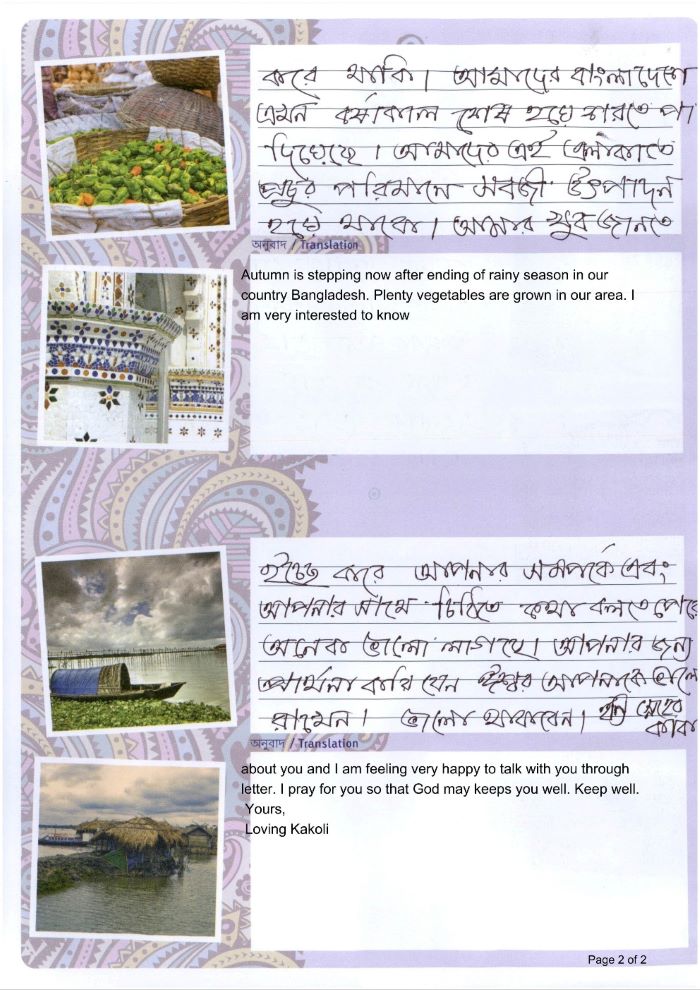 করে থাকি। আমাদের বাংলাদেশে
এমন বর্ষাকাল শেষ হয়ে শরতে পা
দিয়েছে। আমাদের এই এলাকাতে
প্রচুর পরিমানে সবজী উৎপাদন
হয়ে থাকে। আমার খুব জানতে
অনুবাদ / Translation
Autumn is stepping now after ending of rainy season in our
country Bangladesh. Plenty vegetables are grown in our area. I
am very interested to know
ইচ্ছে করে আপনার সমপর্কে এবং
আপনার সাথে চিঠিতে কথা বলতে পেরে
অনেক ভালো লাগছে। আপনার জন্য
প্রার্থনা করি যেন ঈশ্বর আপনাকে ভালো
রাখেন। ভালো থাকবেন। ইতি স্নেহের
কাক
অনুবাদ / Translation
about you and I am feeling very happy to talk with you through
letter. I pray for you so that God may keeps you well. Keep well.
Yours,
Loving Kakoli
Page 2 of 2